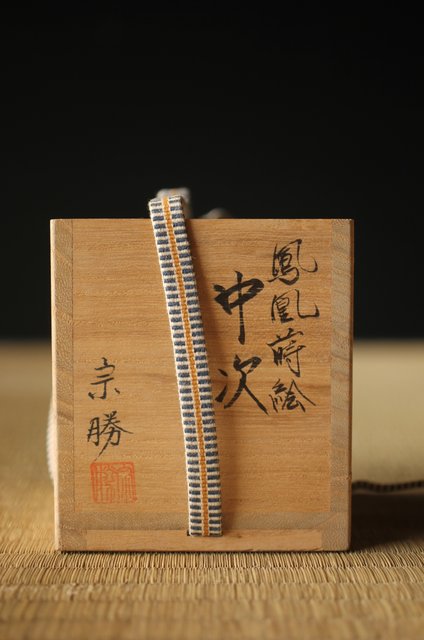 鳳凰蒔絵
中次
宗勝